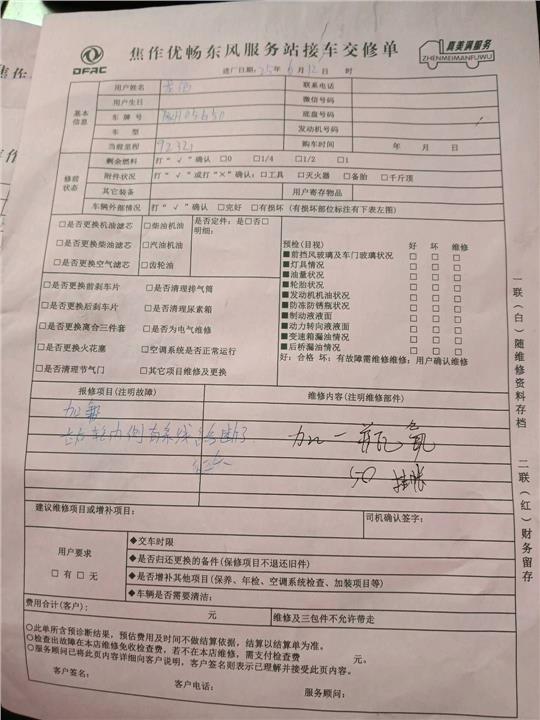 焦作优畅东风服务站接车交修单
DFAC
真美满服务
ZHENMEIMANFUWU
进厂日期: 25年 6月 12日 时
基本信息
用户姓名
联系电话
用户生日
微信号码
车牌号
底盘号码
车型
发动机号码
当前里程
购车时间 年 月 日
修前状态
剩余燃料 打“√”确认 □0 □1/4 □1/2 □1
附件状况 打“√”或打“×”确认: □工具 □灭火器 □备胎 □千斤顶
其它装备
用户寄存物品
车辆外部情况 打“√”确认 □完好 □有损坏(有损坏部位标注有下表左图)
□是否更换机油滤芯 □柴油机油 是否定件: 是□否□
□是否更换柴油滤芯 □汽油机油 明细:
□是否更换空气滤芯 □齿轮油
□是否更换前刹车片 □是否清理排气筒
□是否更换后刹车片 □是否清理尿素箱
□是否更换离合三件套 □是否为电气维修
□是否更换火花塞 □空调系统是否正常运行
□是否清理节气门 □其它项目维修及更换
预检(目视) 好 坏 维修
■前挡风玻璃及车门玻璃状况 □ □ □
■灯具情况 □ □ □
■油量状况 □ □ □
■轮胎状况 □ □ □
■发动机机油状况 □ □ □
■防冻防锈瓶状况 □ □ □
■制动液液面 □ □ □
■动力转向液液面 □ □ □
■变速箱漏油情况 □ □ □
■后桥漏油情况 □ □ □
好: 合格 坏: 有故障需维修维修: 用户确认维修
报修项目(注明故障)
维修内容(注明维修部件)
加氟
加一瓶氟
50 挂账
建议维修项目或增补项目:
司机确认签字:
用户要求
□有 □无
◆交车时限
◆是否归还更换的备件(保修项目不退还旧件)
◆是否增补其他项目(保养、年检、空调系统检查、加装项目等)
◆车辆是否需要清洁:
费用合计(客户): 元
维修及三包件不允许带走
○此单所含预诊断结果,预估费用及时间不做结算依据,结算以结算单为准。
○检查出故障在本店维修免收检查费,若不在本店维修,需支付检查费 元。
○服务顾问已将此页内容详细向客户说明,客户签名则表示已理解并接受此页内容。
客户签名:
客户电话:
服务顾问:
一联(白)随维修资料存档
二联(红)财务留存